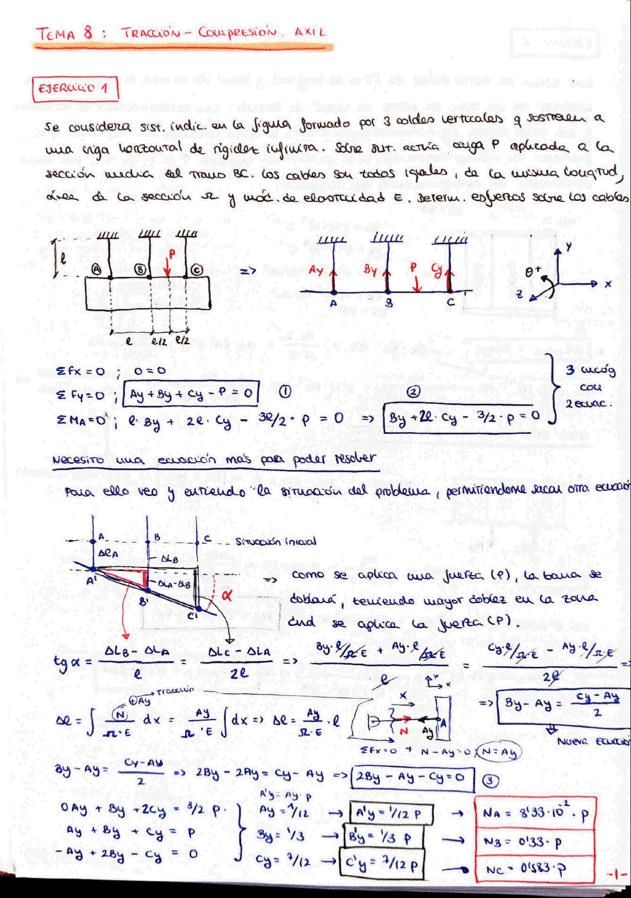 TEMA 8: TRACCIÓN - COMPRESIÓN. AXIL
EJERCICIO 1
Se considera sist. indic. en la figura formado por 3 cables verticales q sostienen a
una viga horizontal de rigidez infinita. Sobre sist. actúa carga P aplicada a la
sección media del tramo BC. Los cables son todos iguales, de la misma longitud,
área de la sección Ω y mód. de elasticidad E. Determ. esfuerzos sobre los cables
l A B P C => Ay By P Cy
A B C
y x z θ+
l l/2 l/2
ΣFx = 0 ; 0 = 0
ΣFy = 0 ; Ay + By + Cy - P = 0 ①
ΣMA = 0 ; l · By + 2l · Cy - 3l/2 · P = 0 => By + 2l · Cy - 3/2 · P = 0 ②
3 incóg
con
2 ecuac.
Necesito una ecuación más para poder resolver
Para ello veo y entiendo la situación del problema, permitiéndome sacar otra ecuación
A B C Situación inicial
ΔlA ΔLB
ΔLB - ΔLA
A' B' C' α
=> como se aplica una fuerza (P), la barra se
doblará, teniendo mayor doblez en la zona
dnd se aplica la fuerza (P).
tg α = ΔLB - ΔLA / l = ΔLC - ΔLA / 2l => By·l/Ω·E + Ay·l/Ω·E / l = Cy·l/Ω·E - Ay·l/Ω·E / 2l
=> By - Ay = Cy - Ay / 2
Nueva ecuación
⊕ Ay Tracción
Δl = ∫ N / Ω·E dx = Ay / Ω·E ∫ dx => Δl = Ay / Ω·E · l
x N Ay A
y x
ΣFx = 0 → N - Ay = 0; N = Ay
By - Ay = Cy - Ay / 2 => 2By - 2Ay = Cy - Ay => 2By - Ay - Cy = 0 ③
0Ay + By + 2Cy = 3/2 P
Ay + By + Cy = P
-Ay + 2By - Cy = 0
A'y = Ay · P
Ay = 1/12 → A'y = 1/12 P → NA = 8'33·10⁻² · P
By = 1/3 → B'y = 1/3 P → NB = 0'33 · P
Cy = 7/12 → C'y = 7/12 P → NC = 0'583 · P
-1-